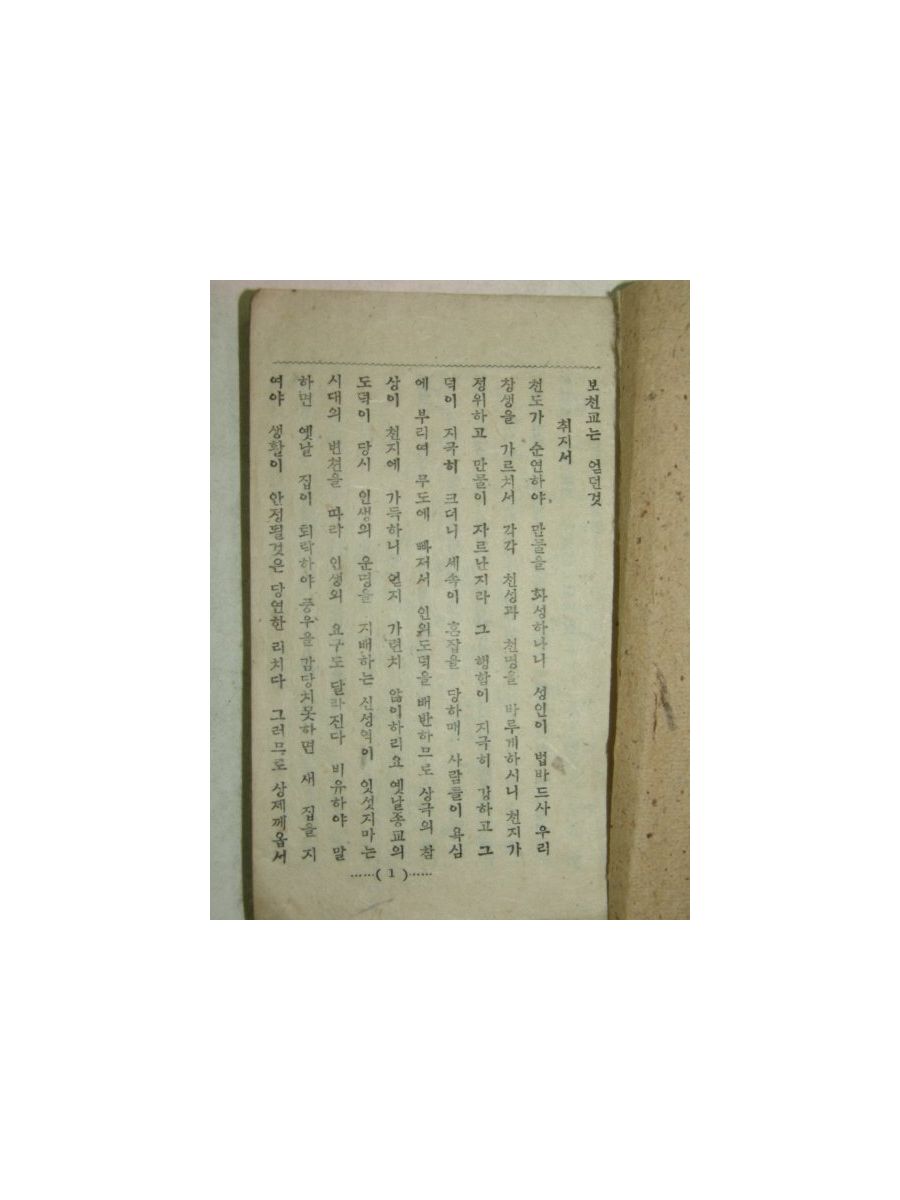 보천교는 얻던것
취지서
천도가 순연하야 만물을 화성하나니 성인이 법바드사 우리
창생을 가르치서 각각 천성과 천명을 바루게하시니 천지가
정위하고 만물이 자르난지라 그 행함이 지극히 강하고 그
덕이 지극히 크더니 세속이 혼잡을 당하매 사람들이 욕심
에 부리여 무도에 빠저서 인의도덕을 배반하므로 상극의 참
상이 천지에 가득하니 얻지 가련치 않이하리요 옛날종교의
도덕이 당시 인생의 운명을 지배하는 신성역이 잇섯지마는
시대의 변천을 따라 인생의 요구도 달라진다 비유하야 말
하면 옛날 집이 퇴락하야 풍우을 감당치못하면 새 집을 지
여야 생활이 안정될것은 당연한 리치다 그러므로 상제께옵서
……( 1 )……